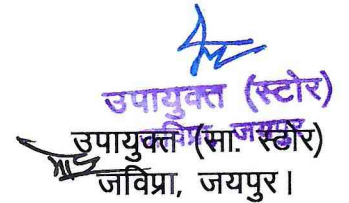 उपायुक्त (स्टोर)
जविप्रा, जयपुर
उपायुक्त (सा. स्टोर)
जविप्रा, जयपुर।